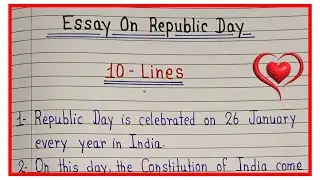 Essay On Republic Day
10 - Lines
1- Republic Day is celebrated on 26 January
every year in India.
2- On this day, the Constitution of India come